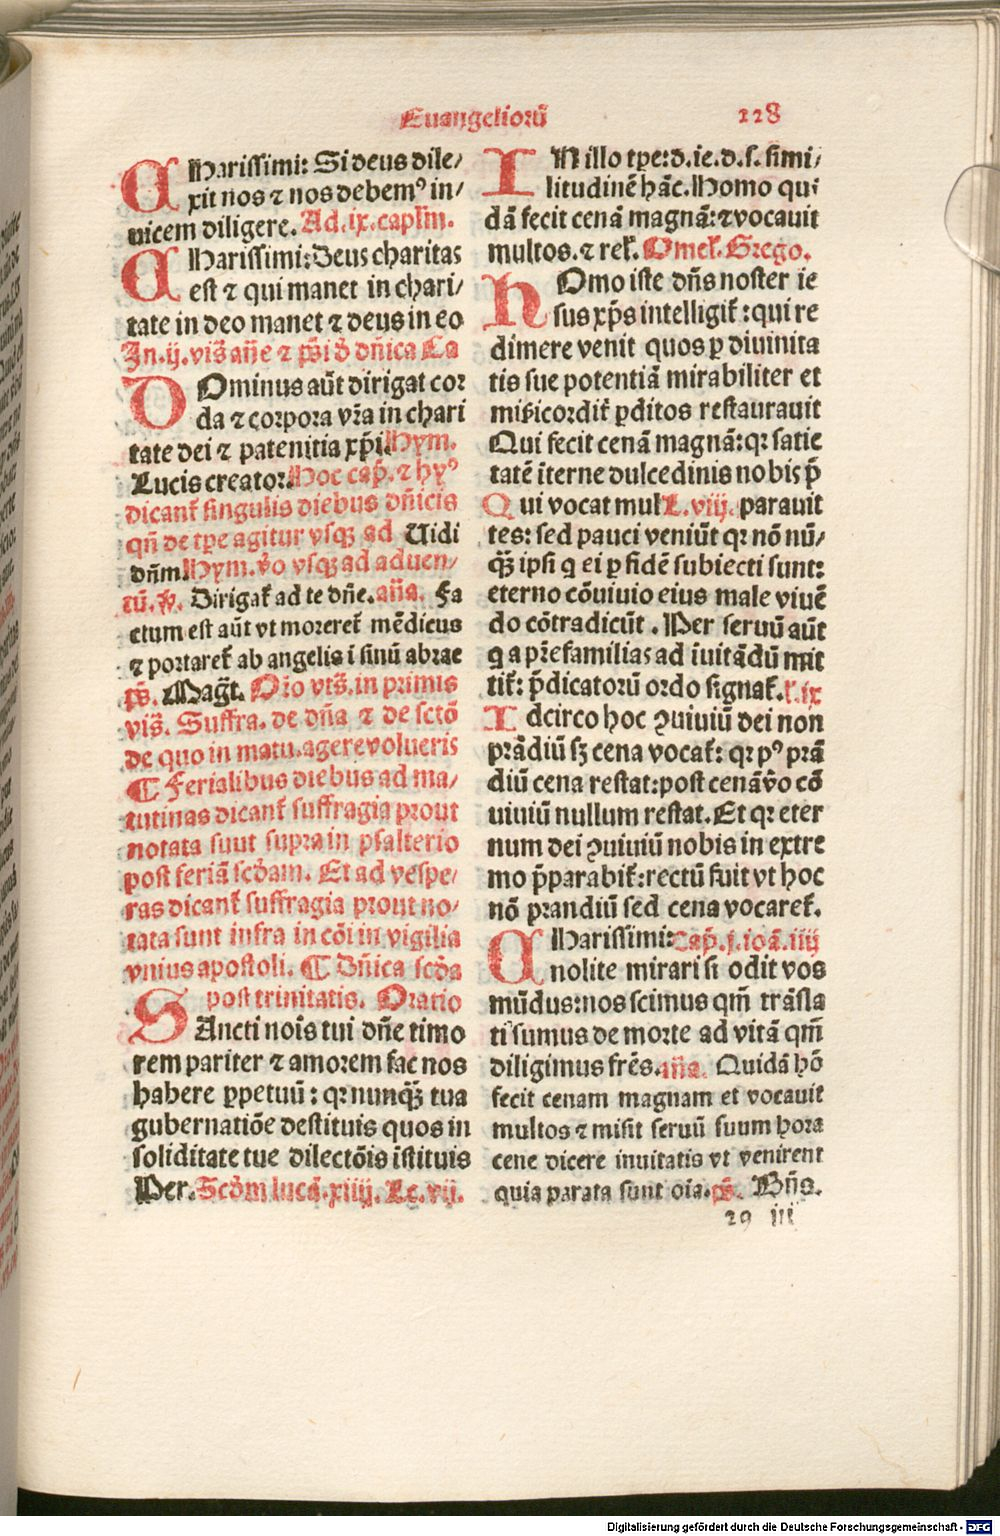 Euangelioꝝ 128
CHarissimi: Si deus dile/
xit nos ⁊ nos debemꝰ in/
uicem diligere. Ad.ix.caplm̄.
CHarissimi: Deus charitas
est ⁊ qui manet in chari/
tate in deo manet ⁊ deus in eo
In.ij.vis̄ an̄e ⁊ ps̄i d̄ dn̄ica La
DOminus aūt dirigat cor
da ⁊ corpora vr̄a in chari
tate dei ⁊ patenitia xp̄i. Hym.
Lucis creator. Hoc cap̄. ⁊ hyꝰ
dicant̄ singulis diebus dn̄icis
qn̄ de tp̄e agitur vsqꝫ ad Uidi
dn̄m. Hym. v̄o vsqꝫ ad aduen/
tū. v̄. Dirigat̄ ad te dn̄e. an̄a. Fa
ctum est aūt vt moreret̄ mēdicus
⁊ portaret̄ ab angelis ī sinū abrae
ps̄. Maḡt. Or̄o vts̄. in primis
vis̄. Suffra. de dn̄a ⁊ de sctō
de quo in matu. agere volueris
¶ Ferialibus diebus ad ma/
tutinas dicant̄ suffragia prout
notata suut supra in psalterio
post feriā scd̄am. Et ad vespe/
ras dicant̄ suffragia prout no/
tata sunt infra in cōi in vigilia
vnius apostoli. ¶ Dn̄ica scd̄a
post trinitatis. Oratio
SAncti nois̄ tui dn̄e timo
rem pariter ⁊ amorem fac nos
habere ꝑpetuū: qꝛ nunqꝫ̄ tua
gubernatiōe destituis quos in
soliditate tue dilectōis īstituis
Per. Scd̄m lucā. xiiij. Lc. vij.
IN illo tp̄e: d. ie. d. s. simi/
litudinē hāc. Homo qui
dā fecit cenā magnā: ⁊ vocauit
multos. ⁊ rel̄. Omel̄. Grego.
HOmo iste dn̄s noster ie
sus xp̄s intelligit̄: qui re
dimere venit quos ꝑ diuinita
tis sue potentiā mirabiliter et
mis̄icordit̄ ꝑditos restaurauit
Qui fecit cenā magnā: qꝛ satie
tatē īterne dulcedinis nobis p̄
Qui vocat mul L. viij. parauit
tes: sed pauci veniūt qꝛ nō nū/
qꝫ̄ ipsi q ei ꝑ fidē subiecti sunt:
eterno cōuiuio eius male viuē
do cōtradicūt. Per seruū aūt
q a pr̄efamilias ad īuitādū mit
tit̄: p̄dicatorū ordo signat̄. l. ix
Idcirco hoc ꝯuiuiū dei non
prādiū sꝫ cena vocat̄: qꝛ pꝰ prā
diū cena restat: post cenā v̄o cō
uiuiū nullum restat. Et qꝛ eter
num dei ꝯuiuiū nobis in extre
mo p̄parabit̄: rectū fuit vt hoc
nō prandiū sed cena vocaret̄.
CHarissimi: Cap̄. j. ioā. iiij
nolite mirari si odit vos
mūdus: nos scimus qm̄ trāsla
ti sumus de morte ad vitā qm̄
diligimus frēs. an̄a. Quidā hō
fecit cenam magnam et vocauit
multos ⁊ misit seruū suum hora
cene dicere inuitatis vt venirent
quia parata sunt oīa. ps̄. Bn̄s.
29 iii
Digitalisierung gefördert durch die Deutsche Forschungsgemeinschaft - DFG